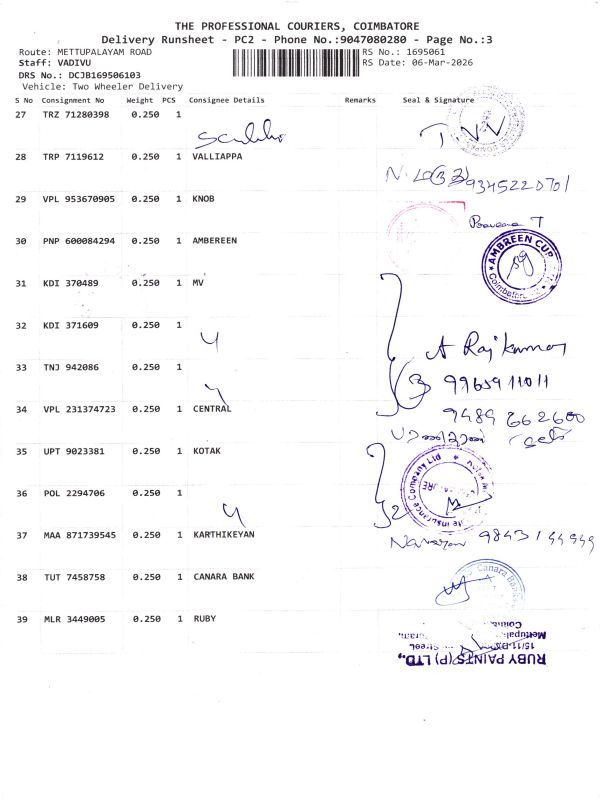 THE PROFESSIONAL COURIERS, COIMBATORE
Delivery Runsheet - PC2 - Phone No.:9047080280 - Page No.:3
Route: METTUPALAYAM ROAD RS No.: 1695061
Staff: VADIVU RS Date: 06-Mar-2026
DRS No.: DCJB169506103
Vehicle: Two Wheeler Delivery
S No Consignment No Weight PCS Consignee Details Remarks Seal & Signature
27 TRZ 71280398 0.250 1
28 TRP 7119612 0.250 1 VALLIAPPA
9345220701
29 VPL 953670905 0.250 1 KNOB
30 PNP 600084294 0.250 1 AMBEREEN
AMBREEN CUP
31 KDI 370489 0.250 1 MV
32 KDI 371609 0.250 1
A Rajkumar
33 TNJ 942086 0.250 1
3 9965911011
34 VPL 231374723 0.250 1 CENTRAL
9489 662600
35 UPT 9023381 0.250 1 KOTAK
Insurance Company Ltd
36 POL 2294706 0.250 1
2
37 MAA 871739545 0.250 1 KARTHIKEYAN
Narayan
38 TUT 7458758 0.250 1 CANARA BANK
Canara Bank
39 MLR 3449005 0.250 1 RUBY
RUBY PAINTS (P) LTD.,